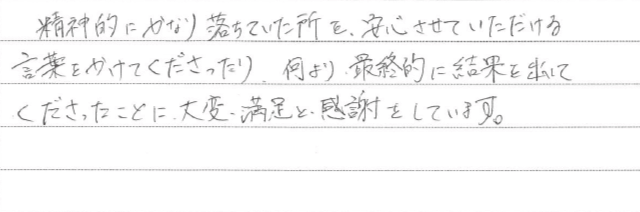 精神的にかなり落ちていた所を、安心させていただける
言葉をかけてくださったり、何より最終的に結果を出して
くださったことに、大変、満足と、感謝をしています。